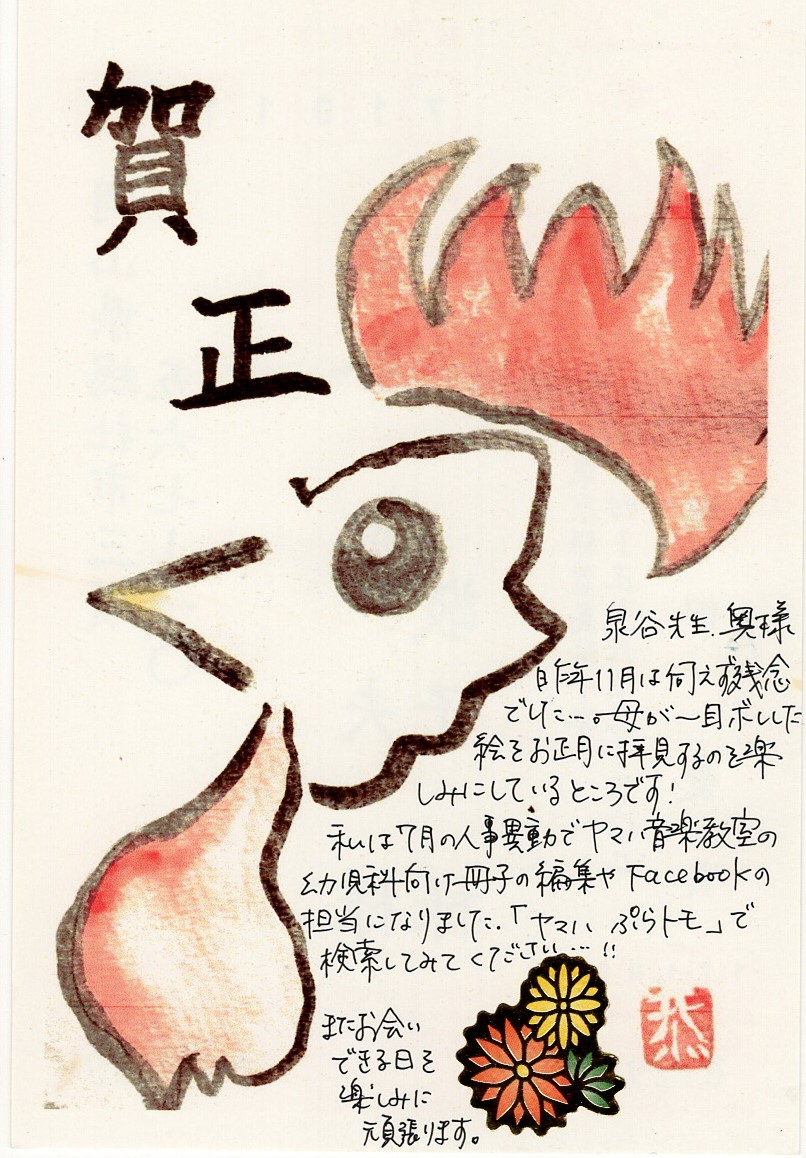 賀
正
泉谷先生、奥様
昨年11月は伺えず残念
でした…。母が一目ボレした
絵をお正月に拝見するのを楽
しみにしているところです！
私は7月の人事異動でヤマハ音楽教室の
幼児科向け冊子の編集やFacebookの
担当になりました。「ヤマハ ぷらトモ」で
検索してみてください…!!
またお会い
できる日を
楽しみに
頑張ります。
恭